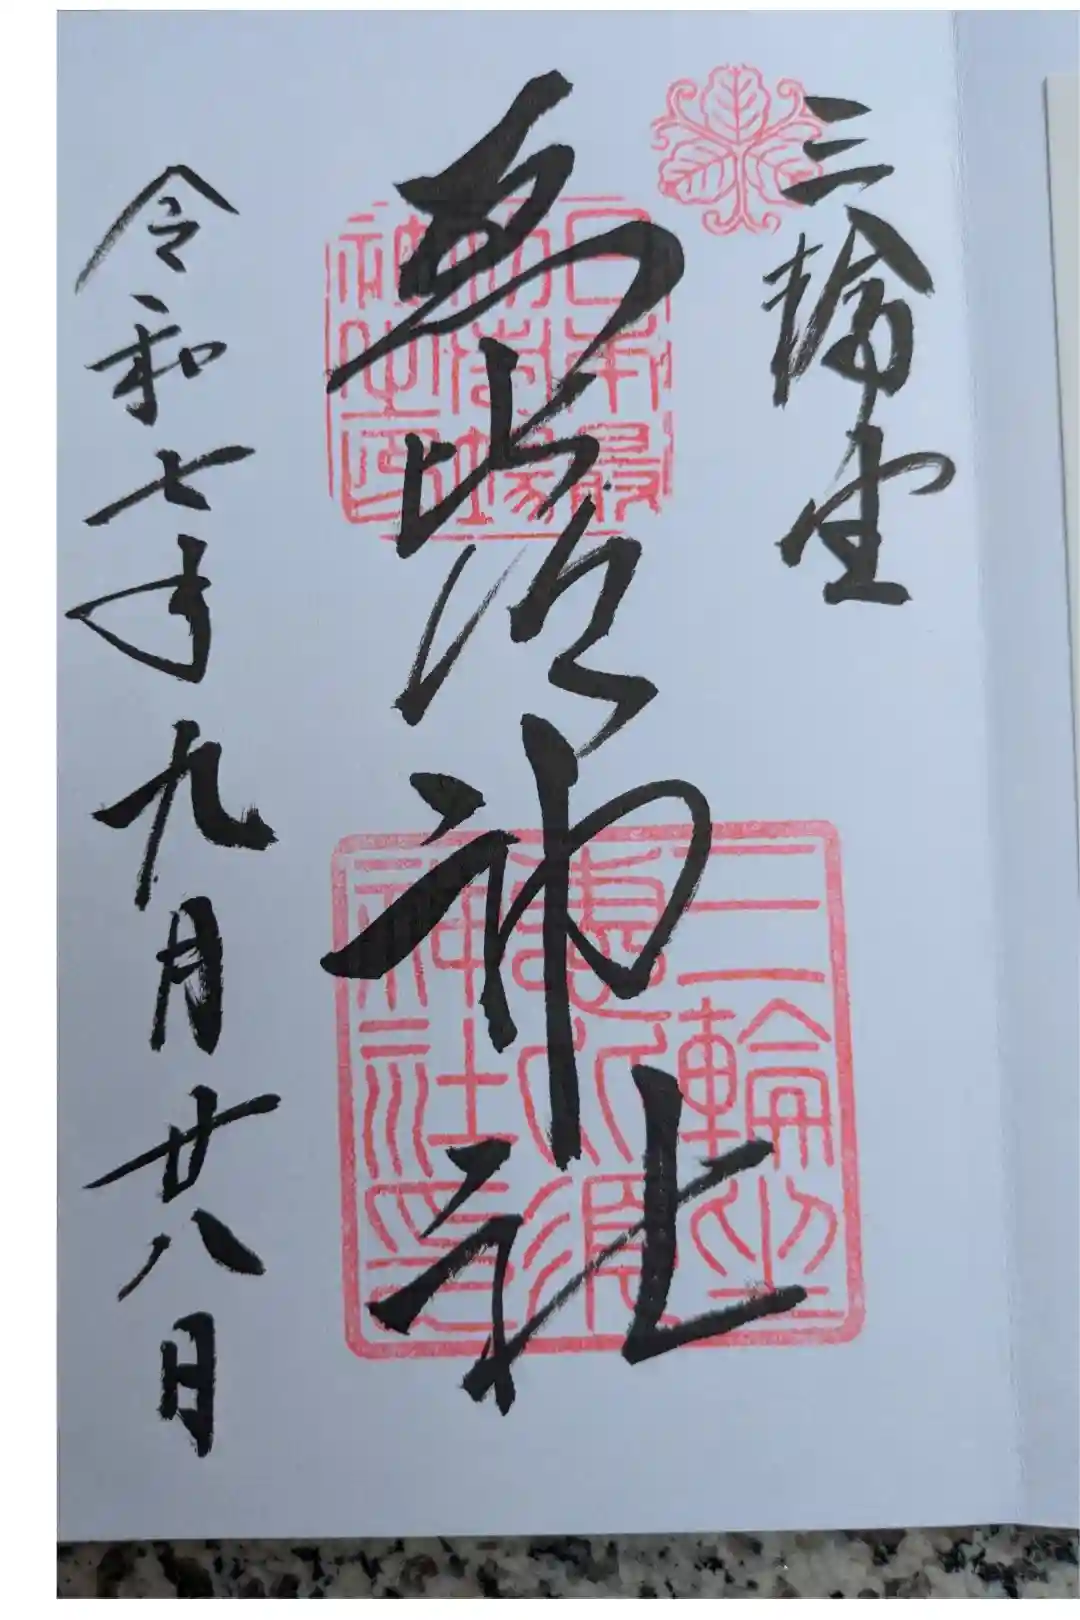 三輪坐
恵比須神社
令和七年九月廿八日
日本最
初市場
神之印
三輪坐
惠比須
神社印